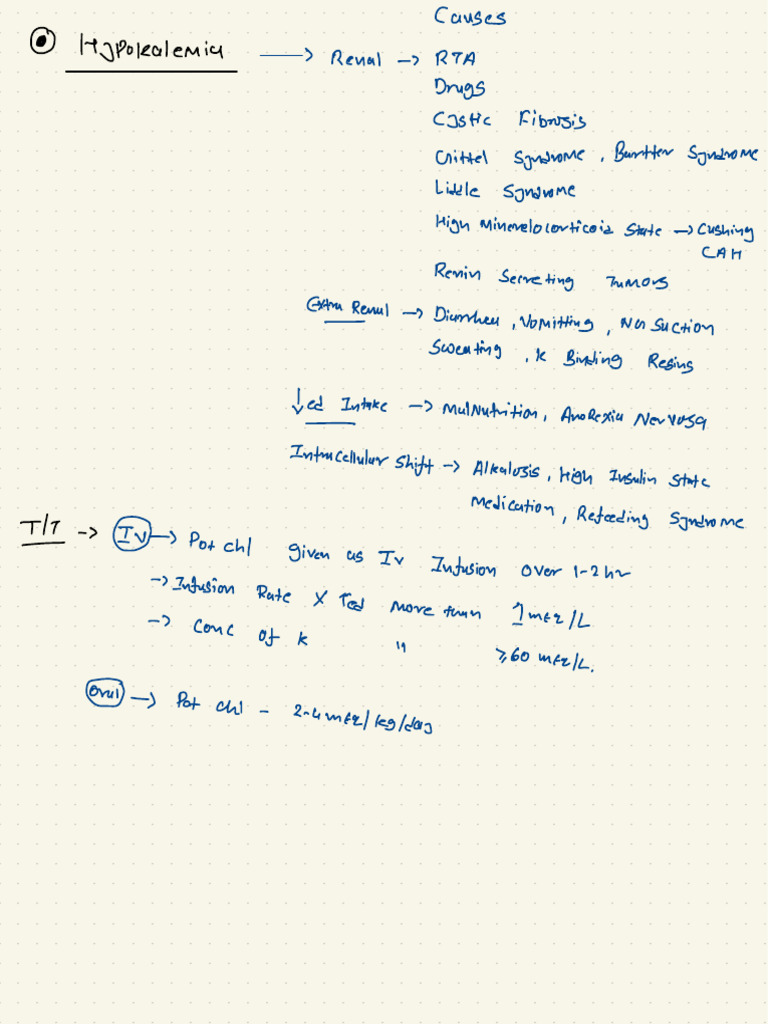 Causes
Hypokalemia → Renal → RTA
Drugs
Cystic Fibrosis
Gittel Syndrome, Barrtter Syndrome
Liddle Syndrome
High Minerelocorticoid State → Cushing
CAH
Renin Secreting Tumors
Extra Renal → Diarrhea, Vomitting, NG Suction
Sweating, K Binding Resins
↓ed Intake → Malnutrition, Anorexia Nervosa
Intracellular Shift → Alkalosis, High Insulin State
Medication, Refeeding Syndrome
T/T → IV → Pot chl given as Iv Infusion over 1-2 hr
→ Infusion Rate X ↑ed more than 1 mEq/L
→ Conc of K " ≥60 mEq/L.
Oral → Pot chl - 2-4 mEq/kg/day